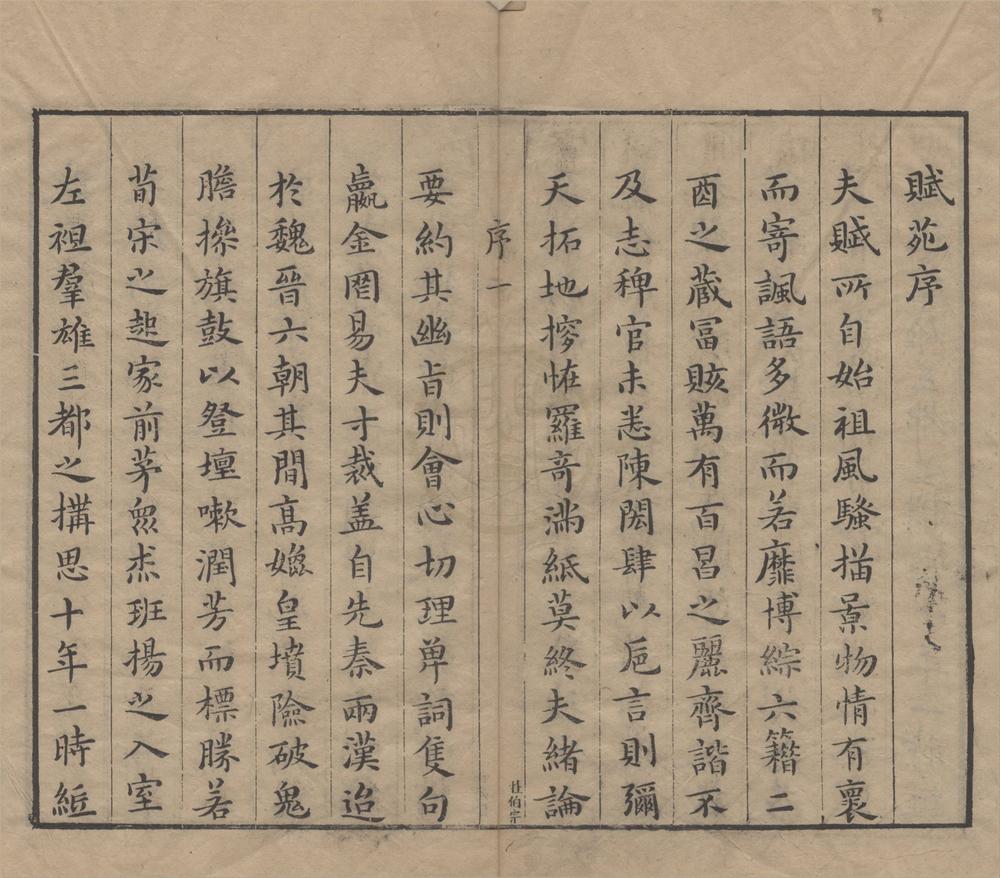 賦苑序
夫賦所自始祖風騷描景物情有裏
而寄諷語多微而若靡博綜六籍二
酉之藏冨賅萬有百昌之麗齊諧不
及志稗官未悉陳閎肆以巵言則彌
天拓地搾恠羅奇滿紙莫終夫緒論
序一
杜伯宗
要約其幽㫖則會心切理单詞隻句
嬴金罔易夫寸裁盖自先秦兩漢迨
於魏晉六朝其間髙媲皇墳險破鬼
膽操旗鼓以登壇嗽潤芳而標勝若
荀宋之起家前茅㒶杰班揚之入室
左袒羣雄三都之搆思十年一時絍